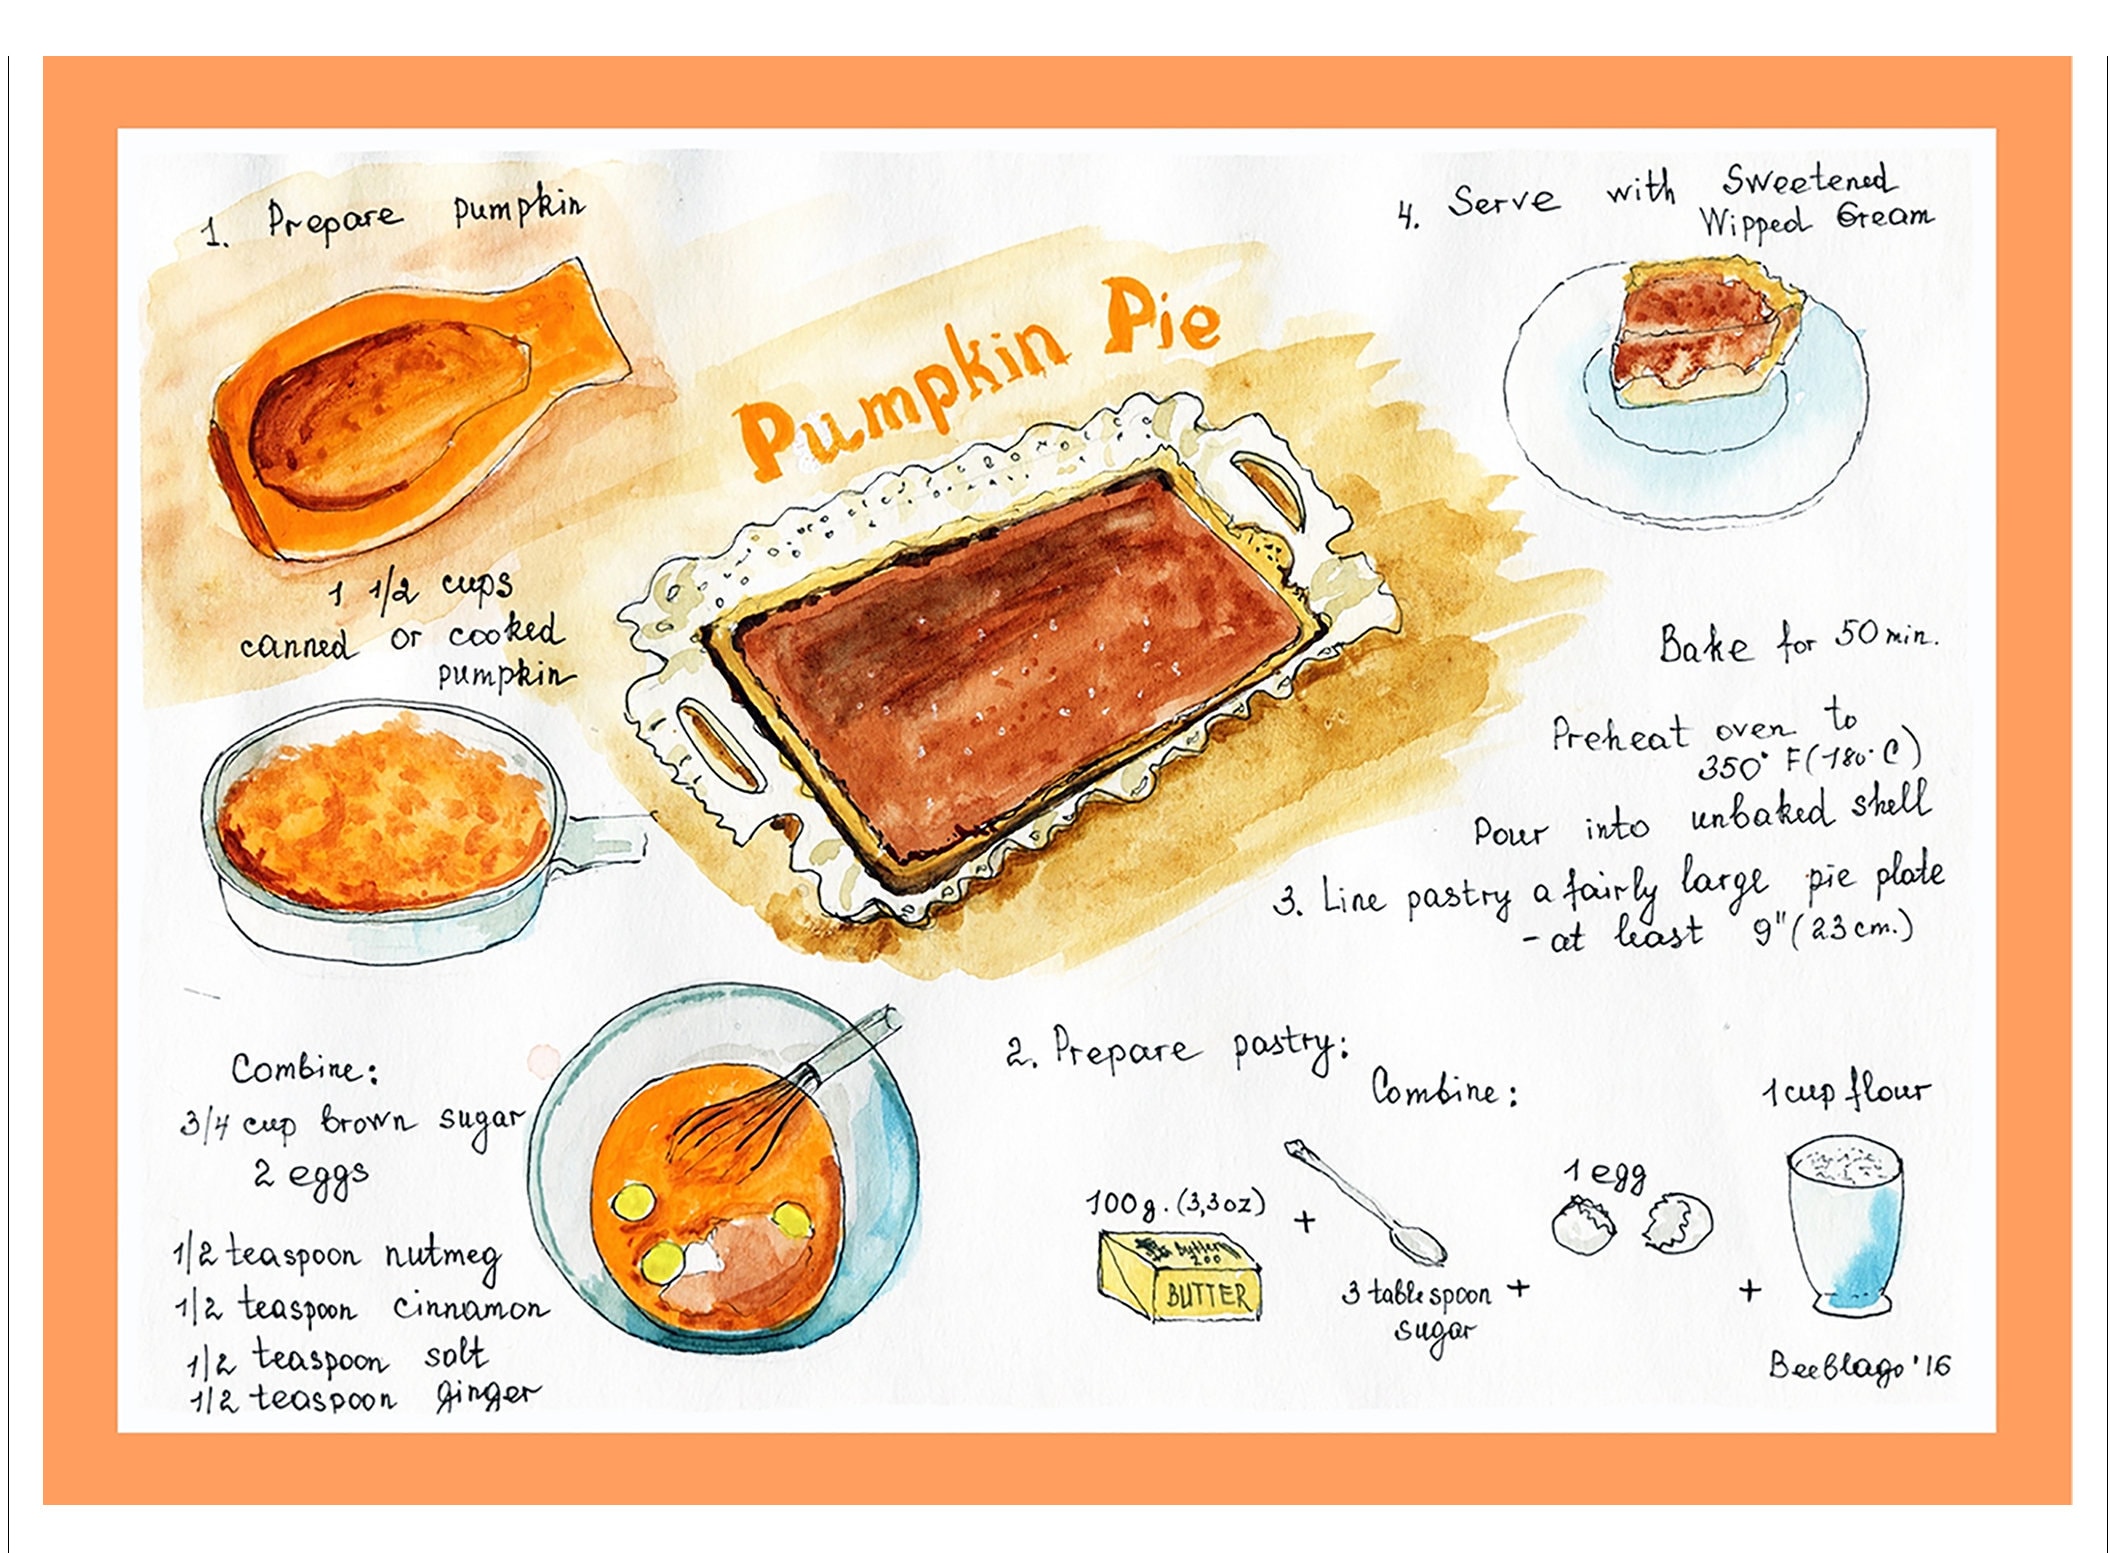 Pumpkin Pie
1. Prepare pumpkin
1 1/2 cups
canned or cooked
pumpkin
Combine:
3/4 cup brown sugar
2 eggs
1/2 teaspoon nutmeg
1/2 teaspoon cinnamon
1/2 teaspoon salt
1/2 teaspoon ginger
2. Prepare pastry:
Combine:
100g. (3,3oz)
Butter
200
BUTTER
+
3 tablespoon +
sugar
1 egg
+
1 cup flour
3. Line pastry a fairly large pie plate
- at least 9" (23cm.)
Pour into unbaked shell
Preheat oven to
350° F (180° C)
Bake for 50 min.
4. Serve with Sweetened
Wipped Cream
BeeBlago '16